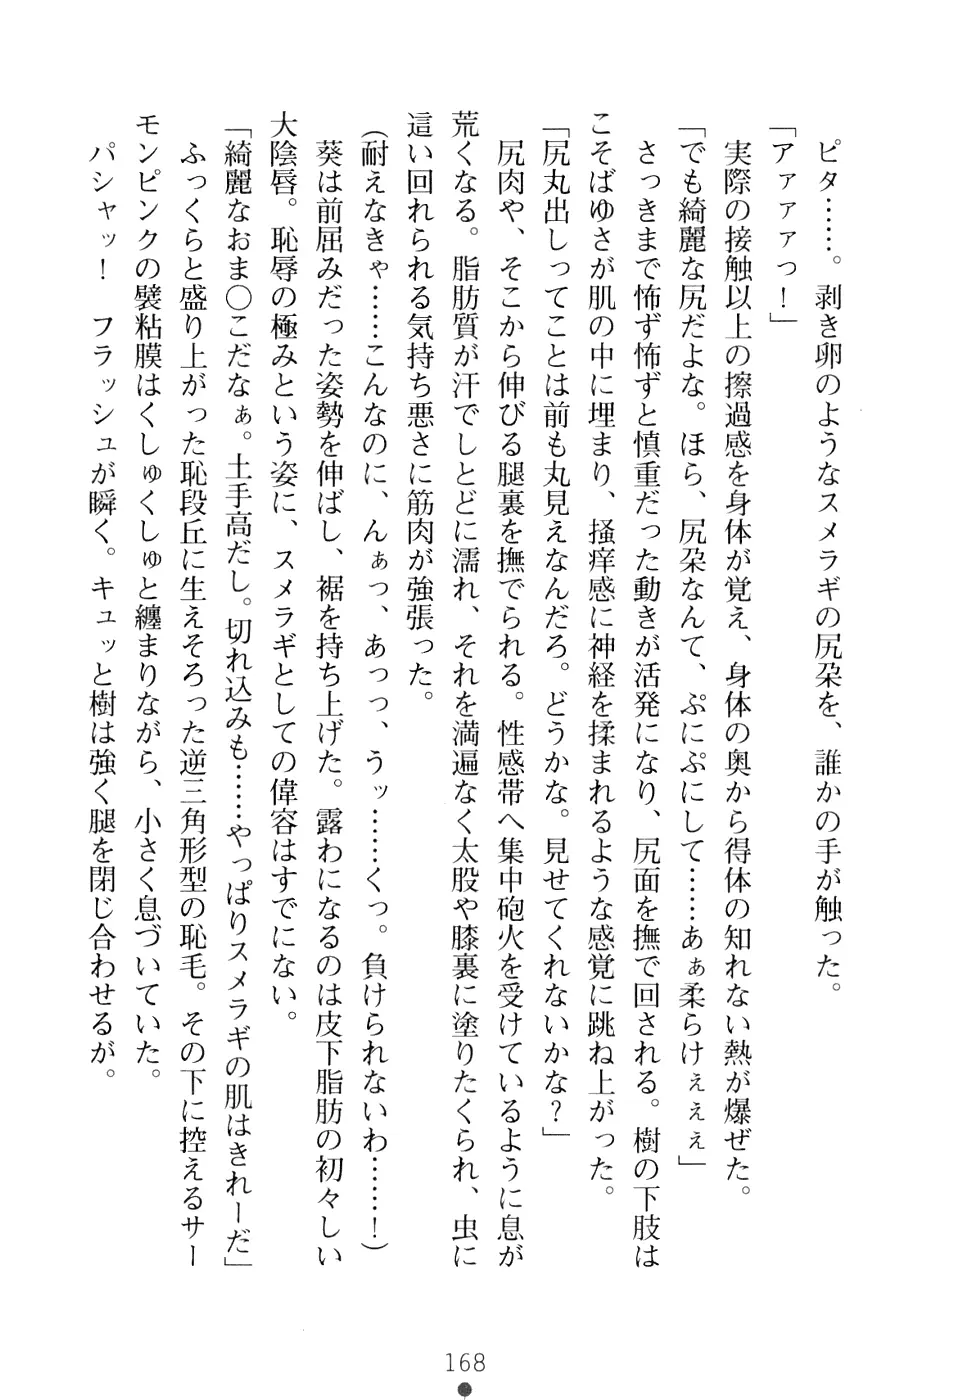 ピタ……。剥き卵のようなスメラギの尻朶を、誰かの手が触った。
「アァァァっ！」
実際の接触以上の擦過感を身体が覚え、身体の奥から得体の知れない熱が爆ぜた。
「でも綺麗な尻だよな。ほら、尻朶なんて、ぷにぷにして……あぁ柔らけぇぇぇ」
さっきまで怖ず怖ずと慎重だった動きが活発になり、尻面を撫で回される。樹の下肢は
こそばゆさが肌の中に埋まり、掻痒感に神経を揉まれるような感覚に跳ね上がった。
「尻丸出しってことは前も丸見えなんだろ。どうかな。見せてくれないかな？」
尻肉や、そこから伸びる腿裏を撫でられる。性感帯へ集中砲火を受けているように息が
荒くなる。脂肪質が汗でしとどに濡れ、それを満遍なく太股や膝裏に塗りたくられ、虫に
這い回れられる気持ち悪さに筋肉が強張った。
（耐えなきゃ……こんなのに、んぁっ、あっっ、うッ……くっ。負けられないわ……！）
葵は前屈みだった姿勢を伸ばし、裾を持ち上げた。露わになるのは皮下脂肪の初々しい
大陰唇。恥辱の極みという姿に、スメラギとしての偉容はすでにない。
「綺麗なおま〇こだなぁ。土手高だし。切れ込みも……やっぱりスメラギの肌はきれーだ」
ふっくらと盛り上がった恥段丘に生えそろった逆三角形型の恥毛。その下に控えるサー
モンピンクの襞粘膜はくしゅくしゅと纏まりながら、小さく息づいていた。
パシャッ！　フラッシュが瞬く。キュッと樹は強く腿を閉じ合わせるが。
168